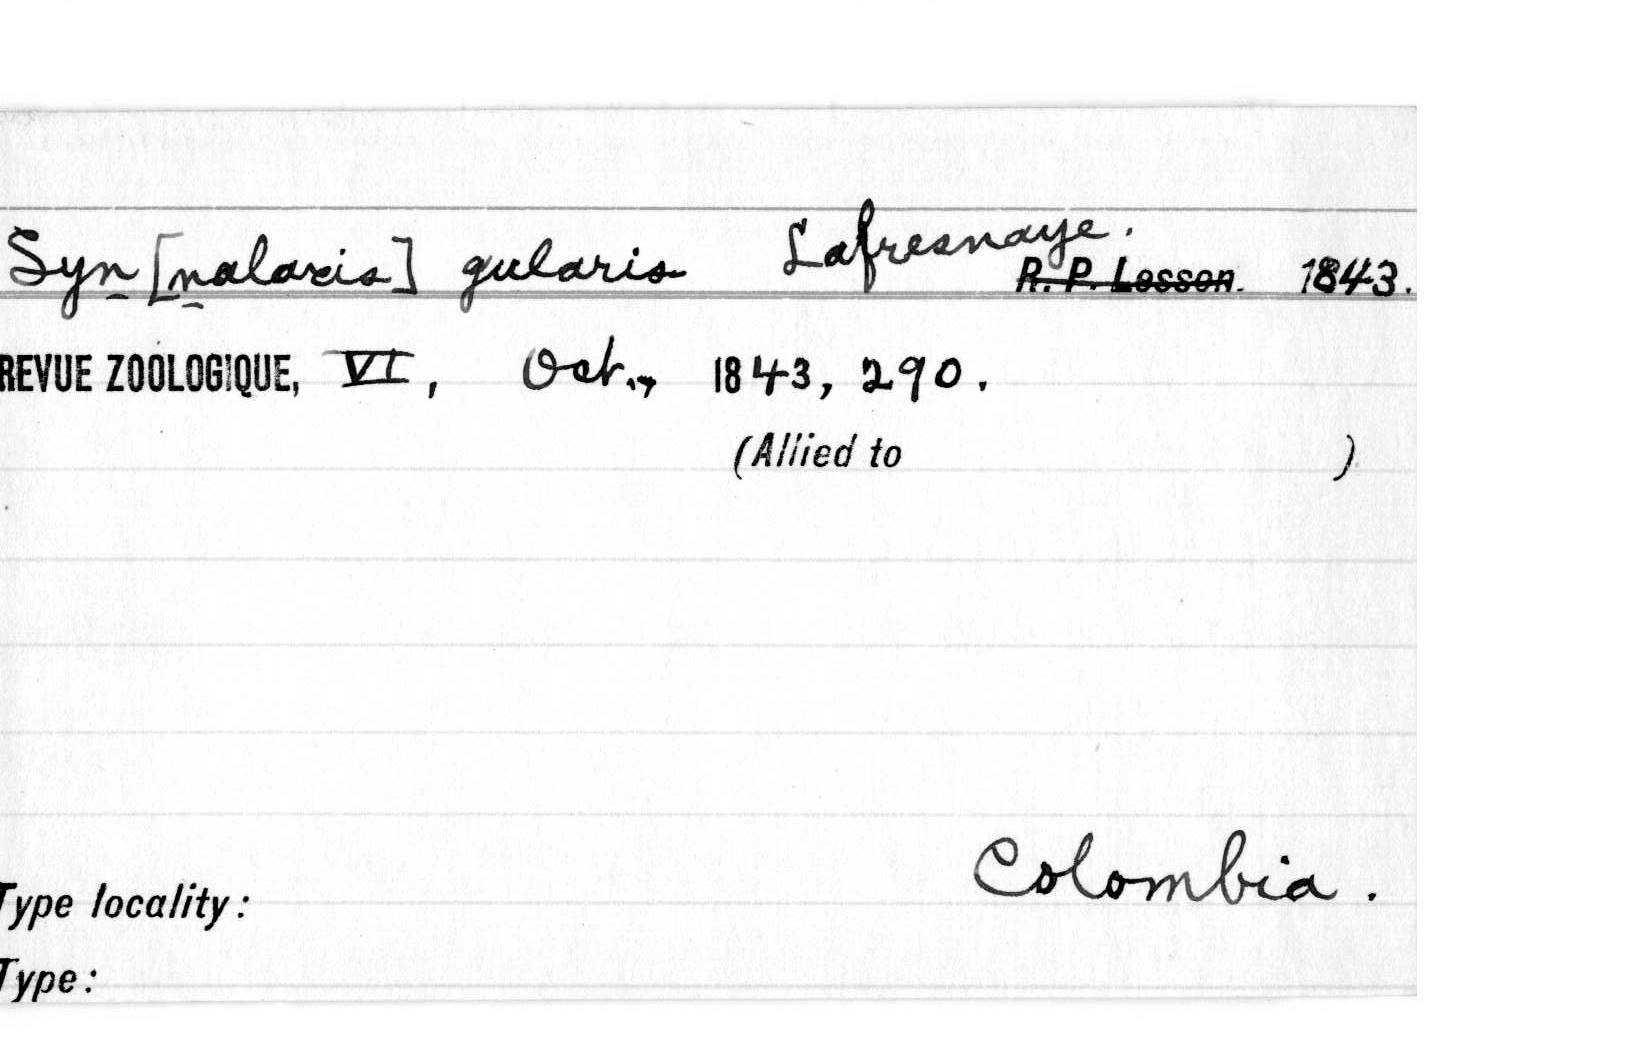 Syn[nalaxis] gularis Lafresnaye. R. P. Lesson. 1843.
REVUE ZOOLOGIQUE, VI, Oct., 1843, 290.
(Allied to )
Colombia.
Type locality:
Type: